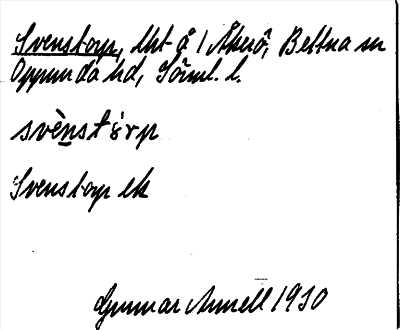 Svenstorp, lht å 1 Åkerö, Bettna sn
Oppunda hd, Söml. l.
svènstórp
Svenstorp ek
Gunnar Amnell 1930